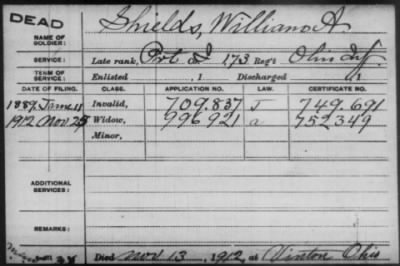 DEAD
NAME OF SOLDIER: Shields, William A
SERVICE: Late rank, Pvt. I 173 Reg't Ohio Inf.
TERM OF SERVICE: Enlisted , 1 Discharged , 1
DATE OF FILING. CLASS. APPLICATION NO. LAW. CERTIFICATE NO.
1889. June 11 Invalid, 709.837 749.691
1912 Nov 25 Widow, 996921 a 752349
Minor,
ADDITIONAL SERVICES:
REMARKS:
Died Nov 13, 1912, at Vinton Ohio